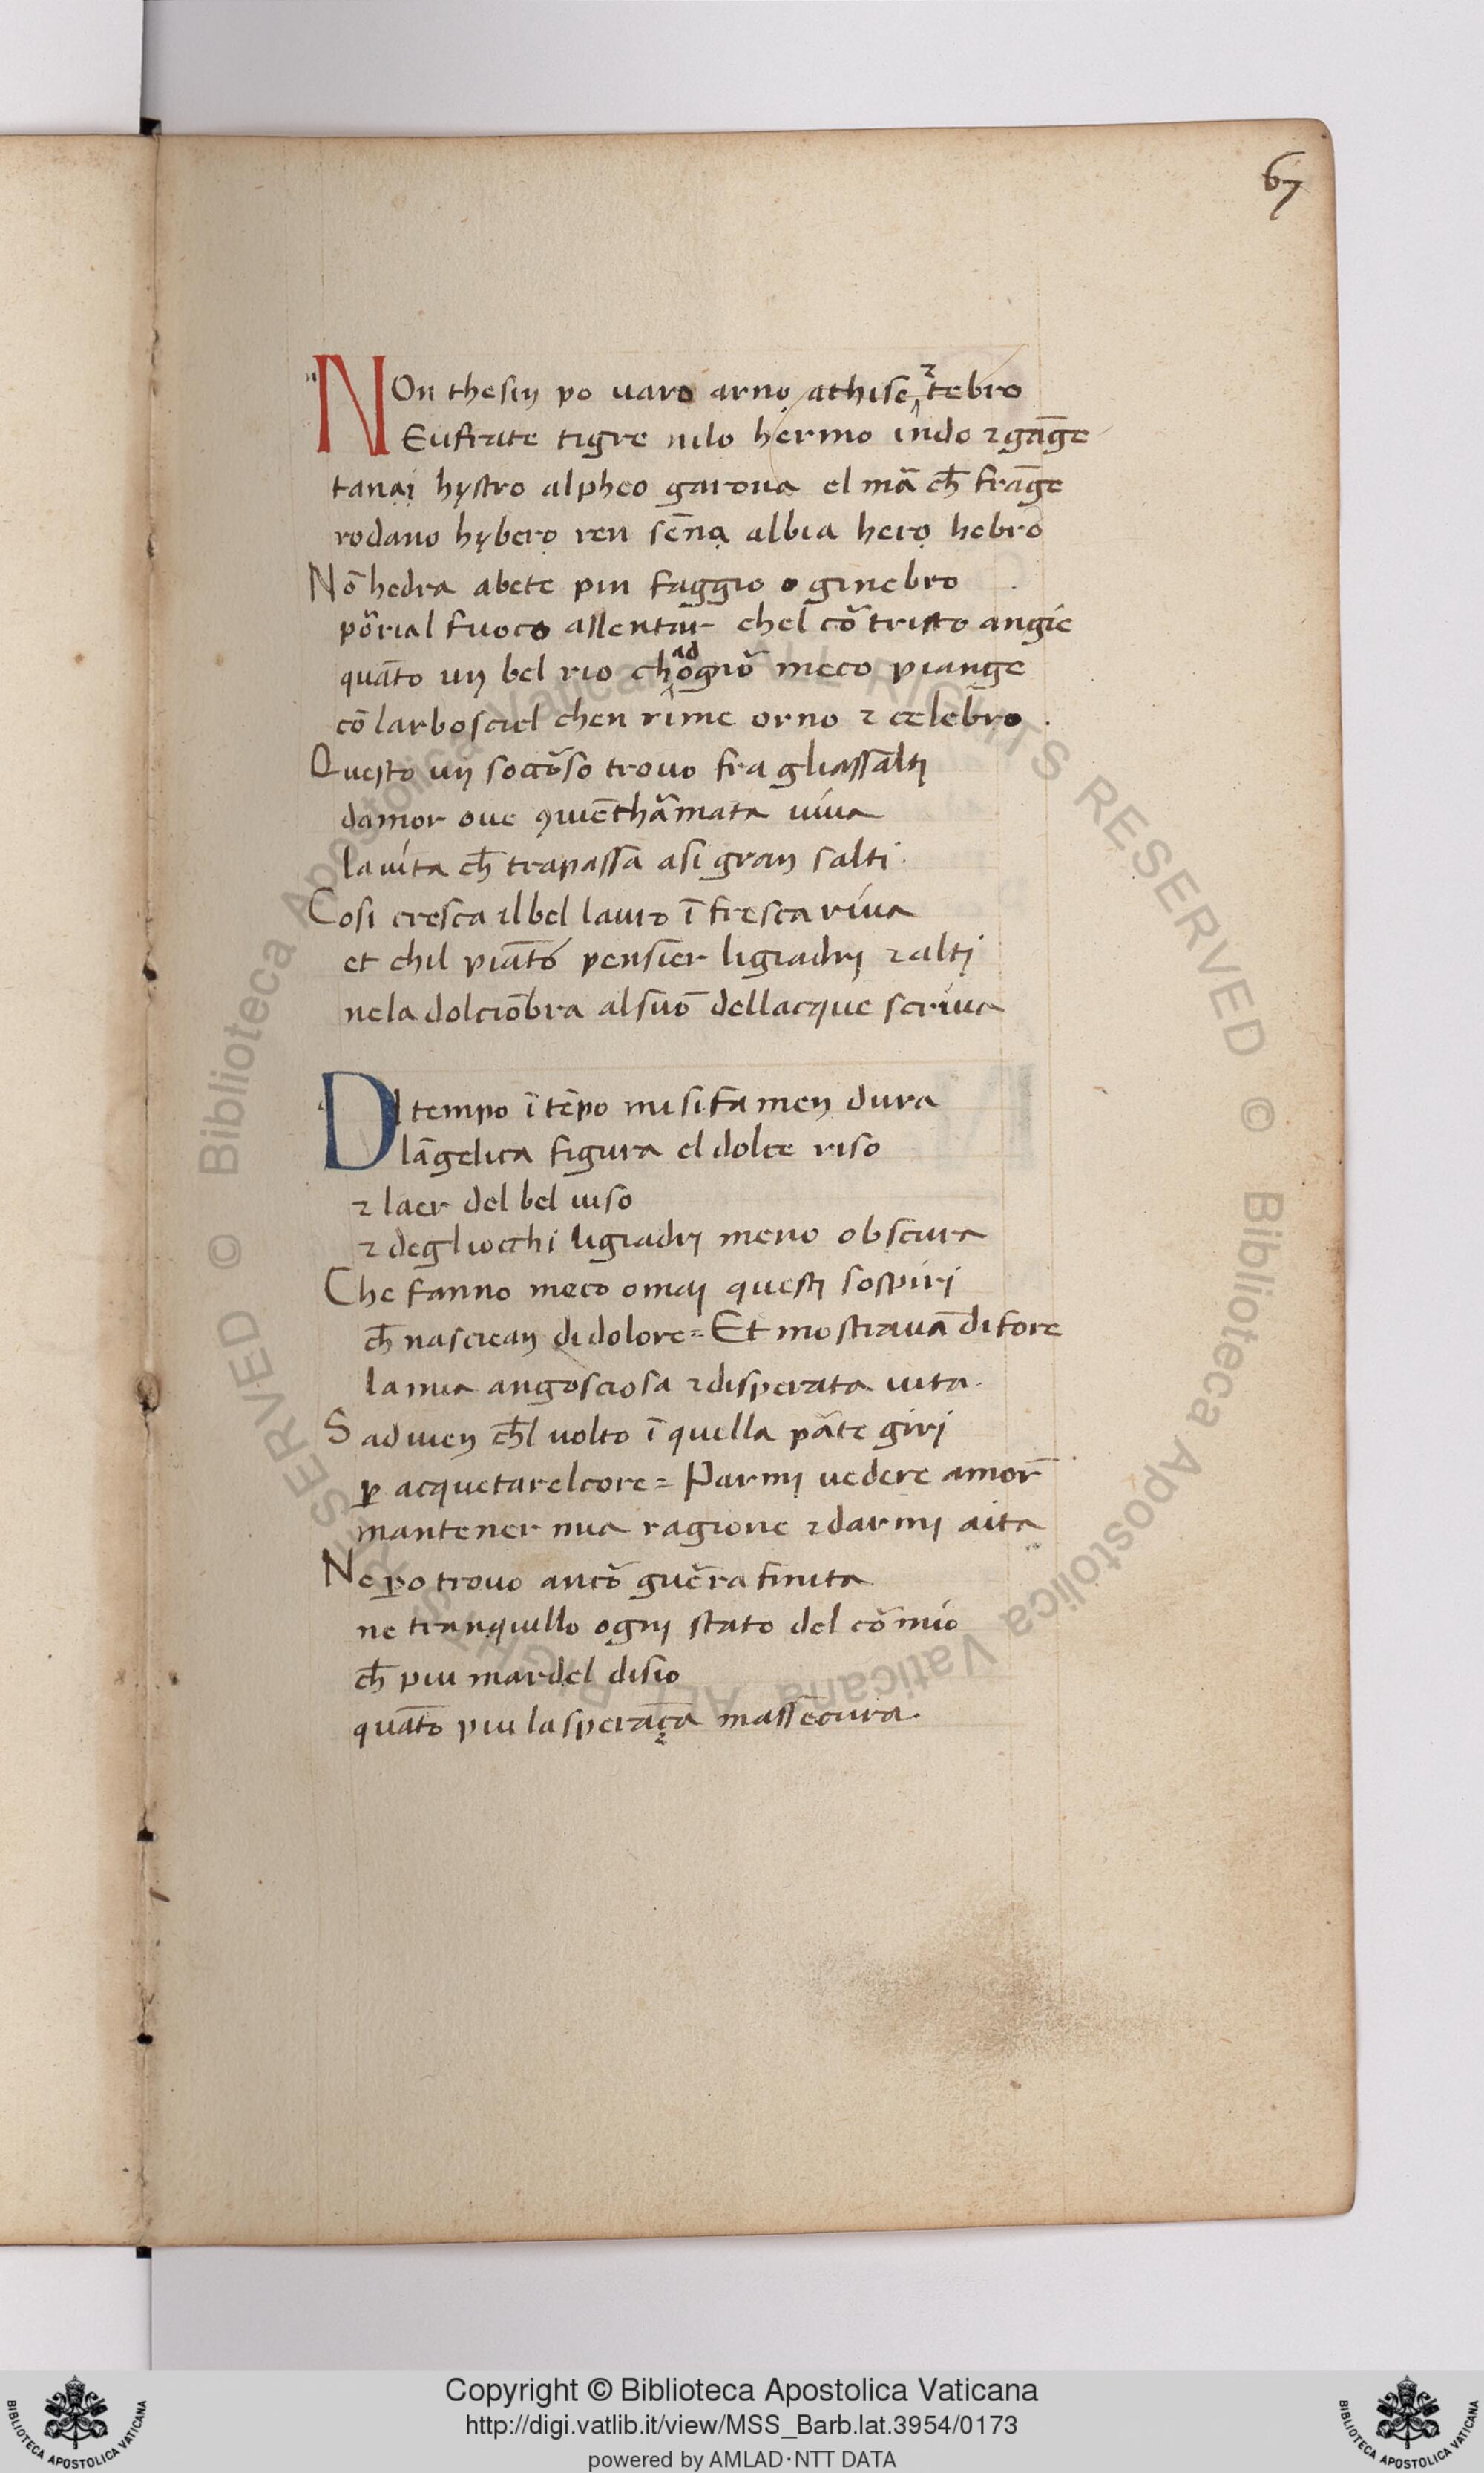 67
NOn thesin po uaro arno athise ⁊ tebro
Eufrate tigre nilo hermo indo ⁊gāge
tanai hystro alpheo garona el mā ch̄ frāge
rodano hybero ren sēna albia hero hebro
Nō hedra abete pin faggio o ginebro
pōrial fuoco allentar chel cō tristo angie
quāto un bel rio ch ad ognō meco piange
cō larboscel chen rime orno ⁊ celebro .
Questo un soccōso trouo fra gliassalti
damor oue ꝯuēthāmata uiua
la uita ch̄ trapassa asi gran salti.
Cosi cresca ilbel lauro ī fresca riua
et chil piātō pensier ligiadri ⁊alti
nela dolciōbra alsuō dellacque scriua
DI tempo ī tēpo misifa men dura
lāgelica figura el dolce riso
⁊ laer del bel uiso
⁊ degliocchi ligiadri meno obscura
Che fanno meco omai questi sospiri
ch̄ nasciean di dolore = Et mostrauā difore
la mia angosciosa ⁊disperata uita.
S aduien ch̄l uolto ī quella pāte giri
ꝑ acquetarelcore = Parmi uedere amor̄
mantener mia ragione ⁊darmi aita
Ne ꝑo trouo ancō guēra finita
ne tranquillo ogni stato del cō mio
ch̄ piu mardel disio
quāto piu lasperāça massecura.
Copyright © Biblioteca Apostolica Vaticana
http://digi.vatlib.it/view/MSS_Barb.lat.3954/0173
powered by AMLAD·NTT DATA
BIBLIOTECA APOSTOLICA VATICANA
BIBLIOTECA APOSTOLICA VATICANA
© Biblioteca Apostolica Vaticana ALL RIGHTS RESERVED © Biblioteca Apostolica Vaticana ALL RIGHTS RESERVED